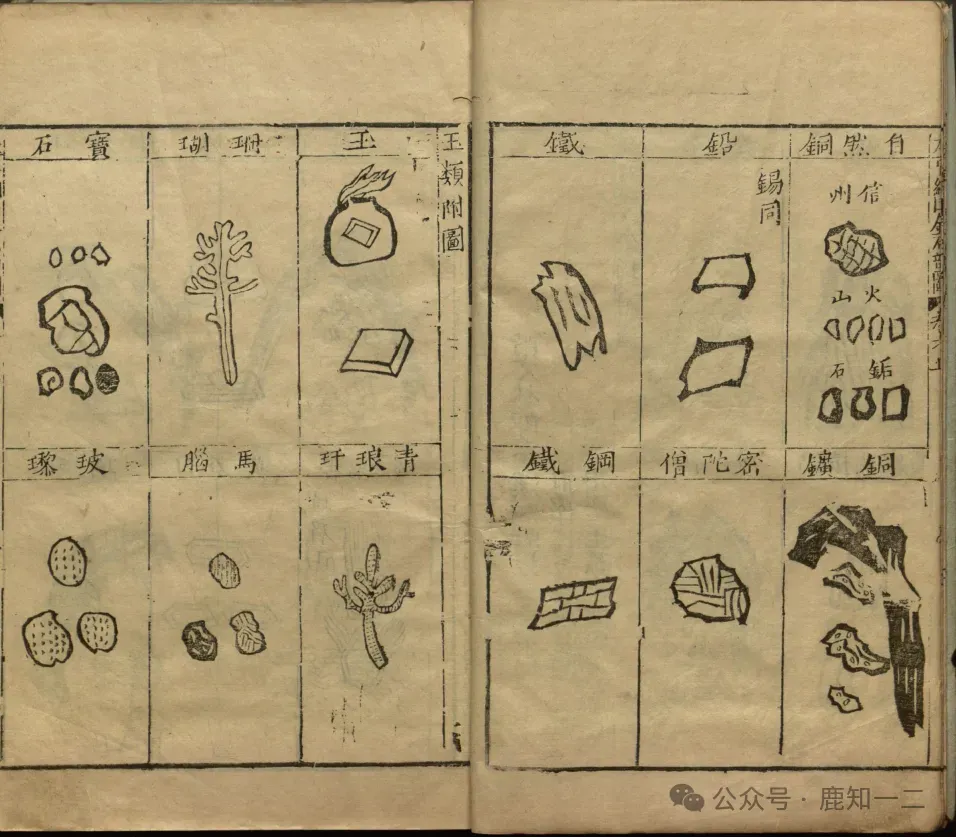 自然銅
信州
火山
鉐石
銅鑛
鉛
錫同
密陀僧
鐵
鋼鐵
玉類附圖
玉
青琅玕
珊瑚
馬腦
寶石
玻瓈
公众号 · 鹿知一二